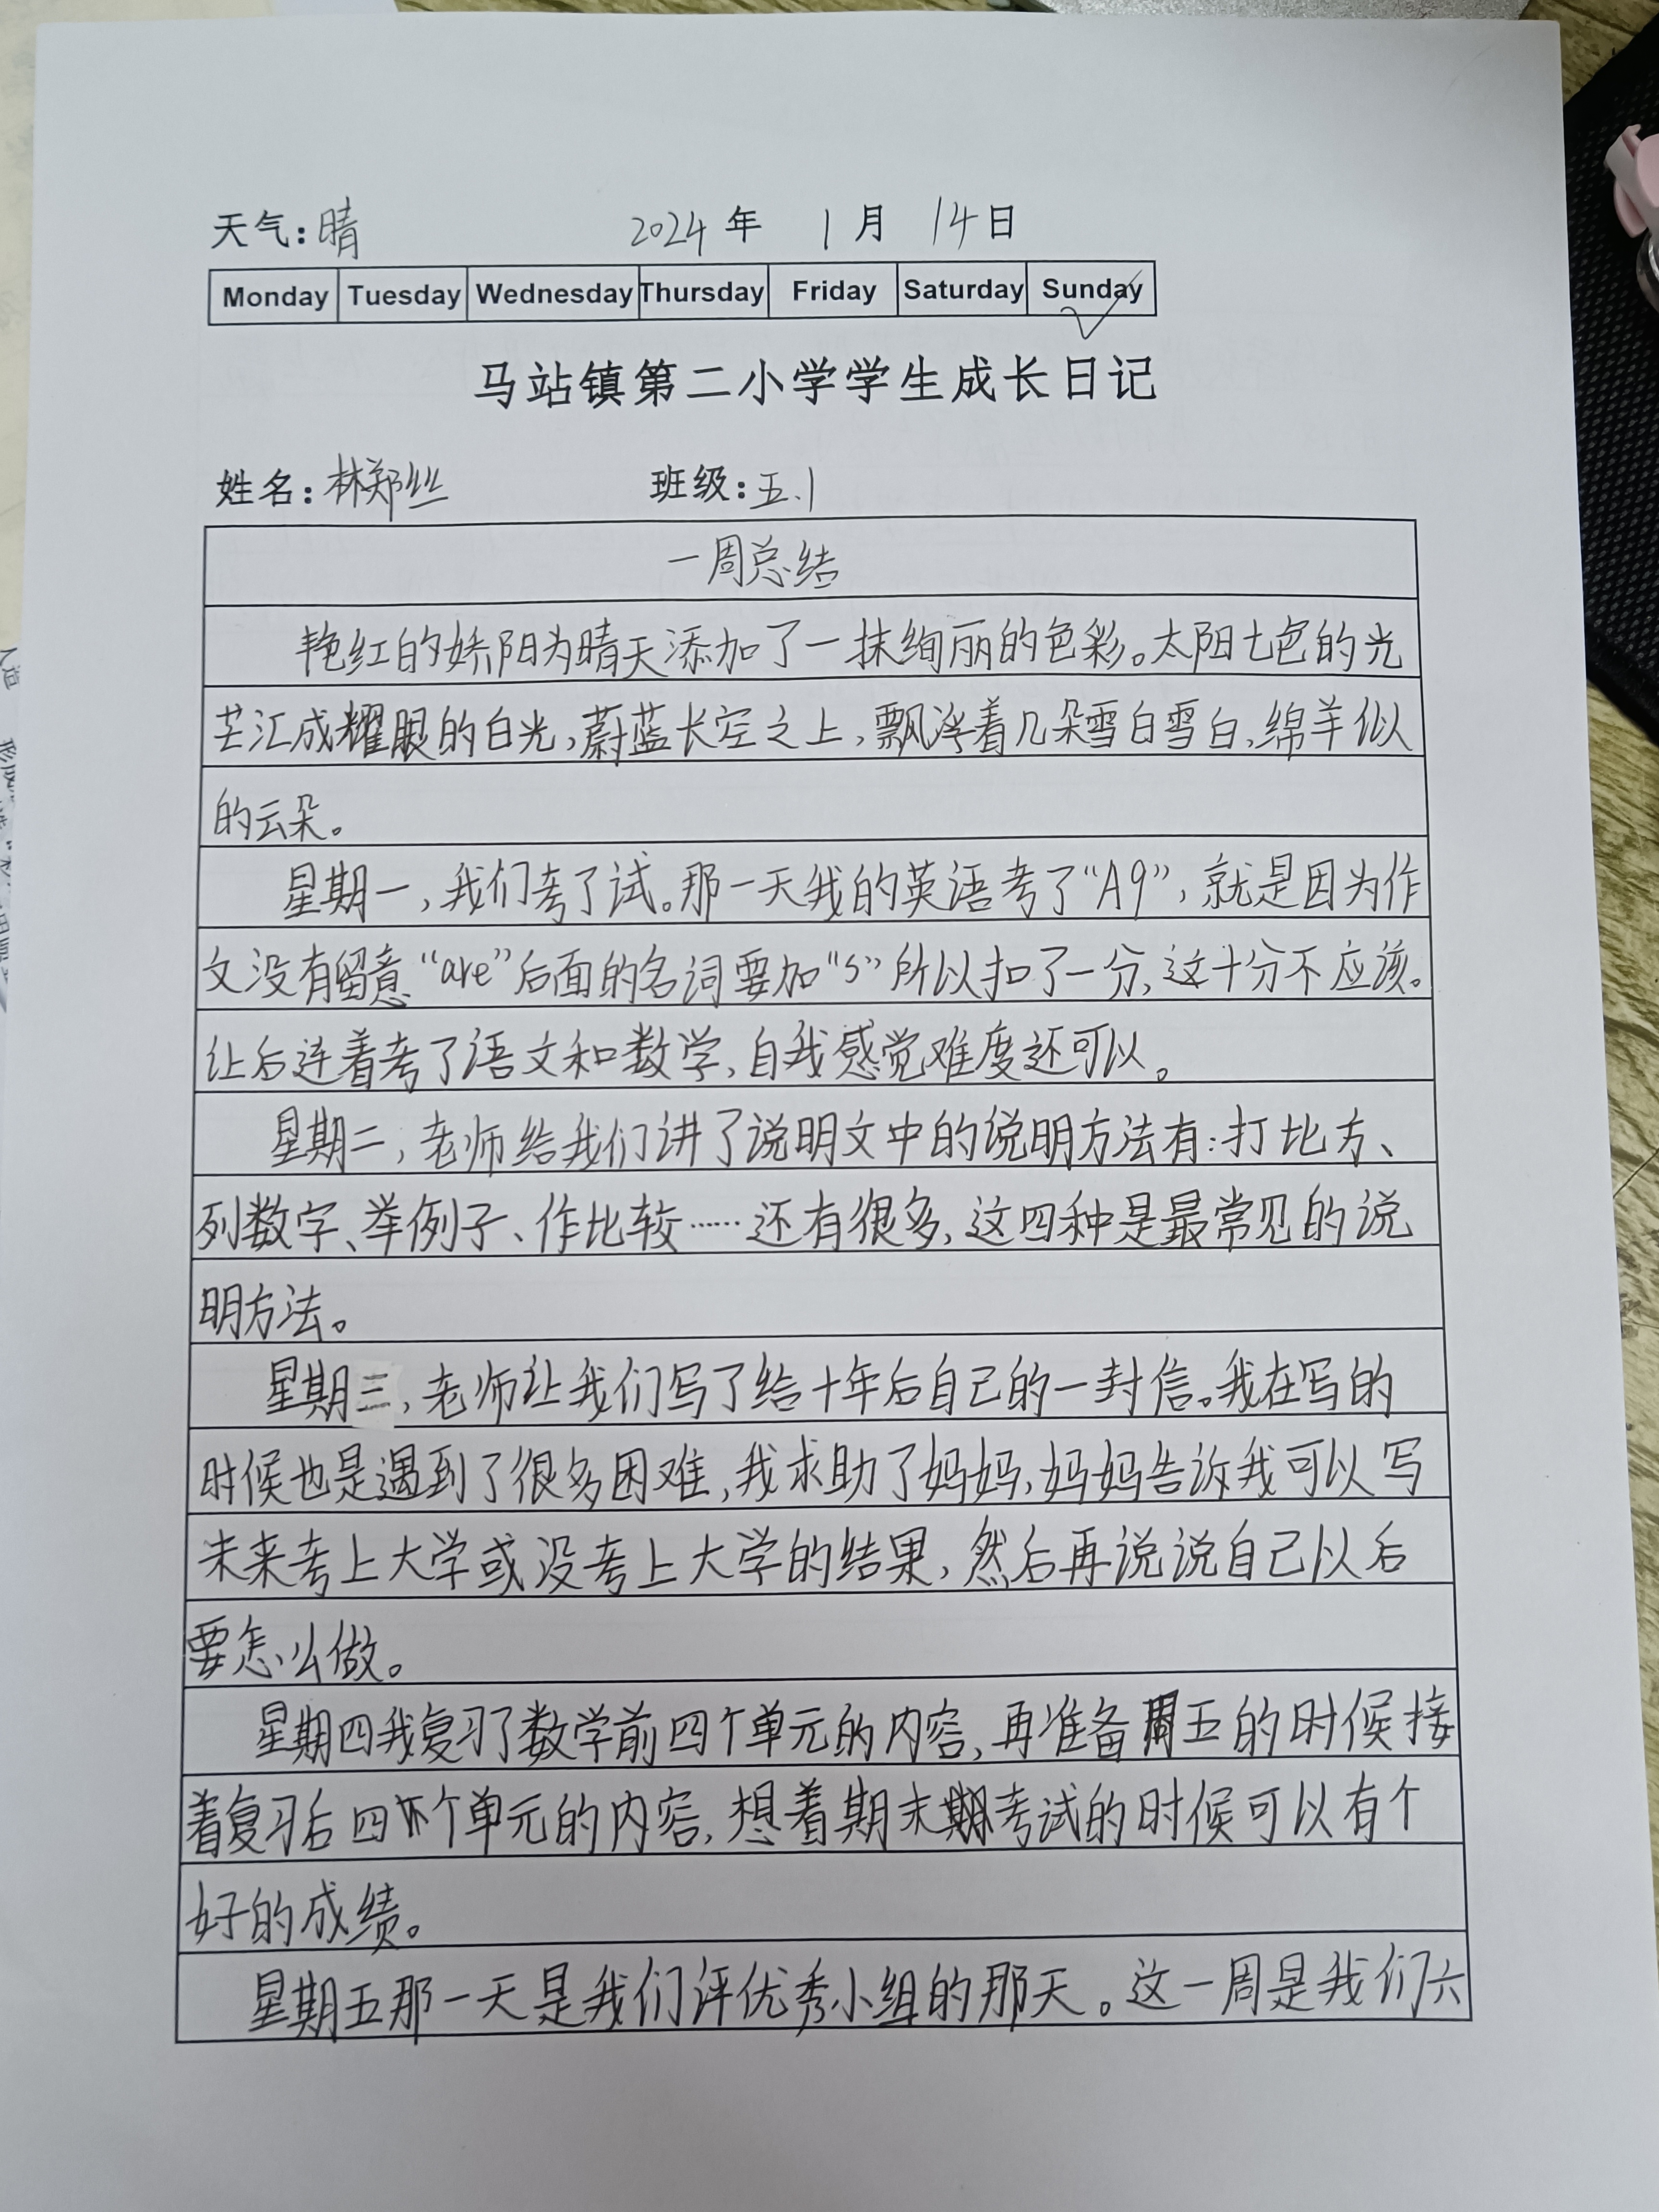 天气:晴 2024年 1月 14日
Monday Tuesday Wednesday Thursday Friday Saturday Sunday
马站镇第二小学学生成长日记
姓名:林郑丝 班级:五.1
一周总结
艳红的娇阳为晴天添加了一抹绚丽的色彩。太阳七色的光
芒汇成耀眼的白光,蔚蓝长空之上,飘浮着几朵雪白雪白,绵羊似
的云朵。
星期一,我们考了试。那一天我的英语考了“A9”,就是因为作
文没有留意“are”后面的名词要加“s”所以扣了一分,这十分不应该。
让后连着考了语文和数学,自我感觉难度还可以。
星期二,老师给我们讲了说明文中的说明方法有:打比方、
列数字、举例子、作比较……还有很多,这四种是最常见的说
明方法。
星期三,老师让我们写了给十年后自己的一封信。我在写的
时候也是遇到了很多困难,我求助了妈妈,妈妈告诉我可以写
未来考上大学或没考上大学的结果,然后再说说自己以后
要怎么做。
星期四我复习了数学前四个单元的内容,再准备周五的时候接
着复习后四个单元的内容,想着期末考试的时候可以有个
好的成绩。
星期五那一天是我们评优秀小组的那天。这一周是我们六